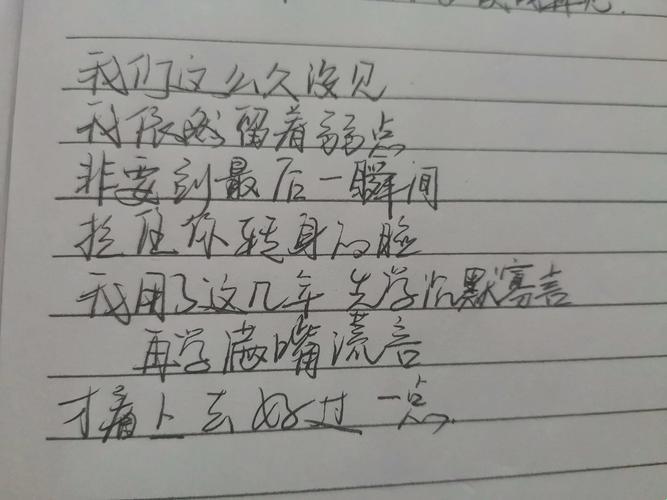 我们这么久没见
我依然留着弱点
非要到最后一瞬间
拉住你转身的脸
我用了这几年 先学沉默寡言
再学满嘴谎言
才痛 去好过一点